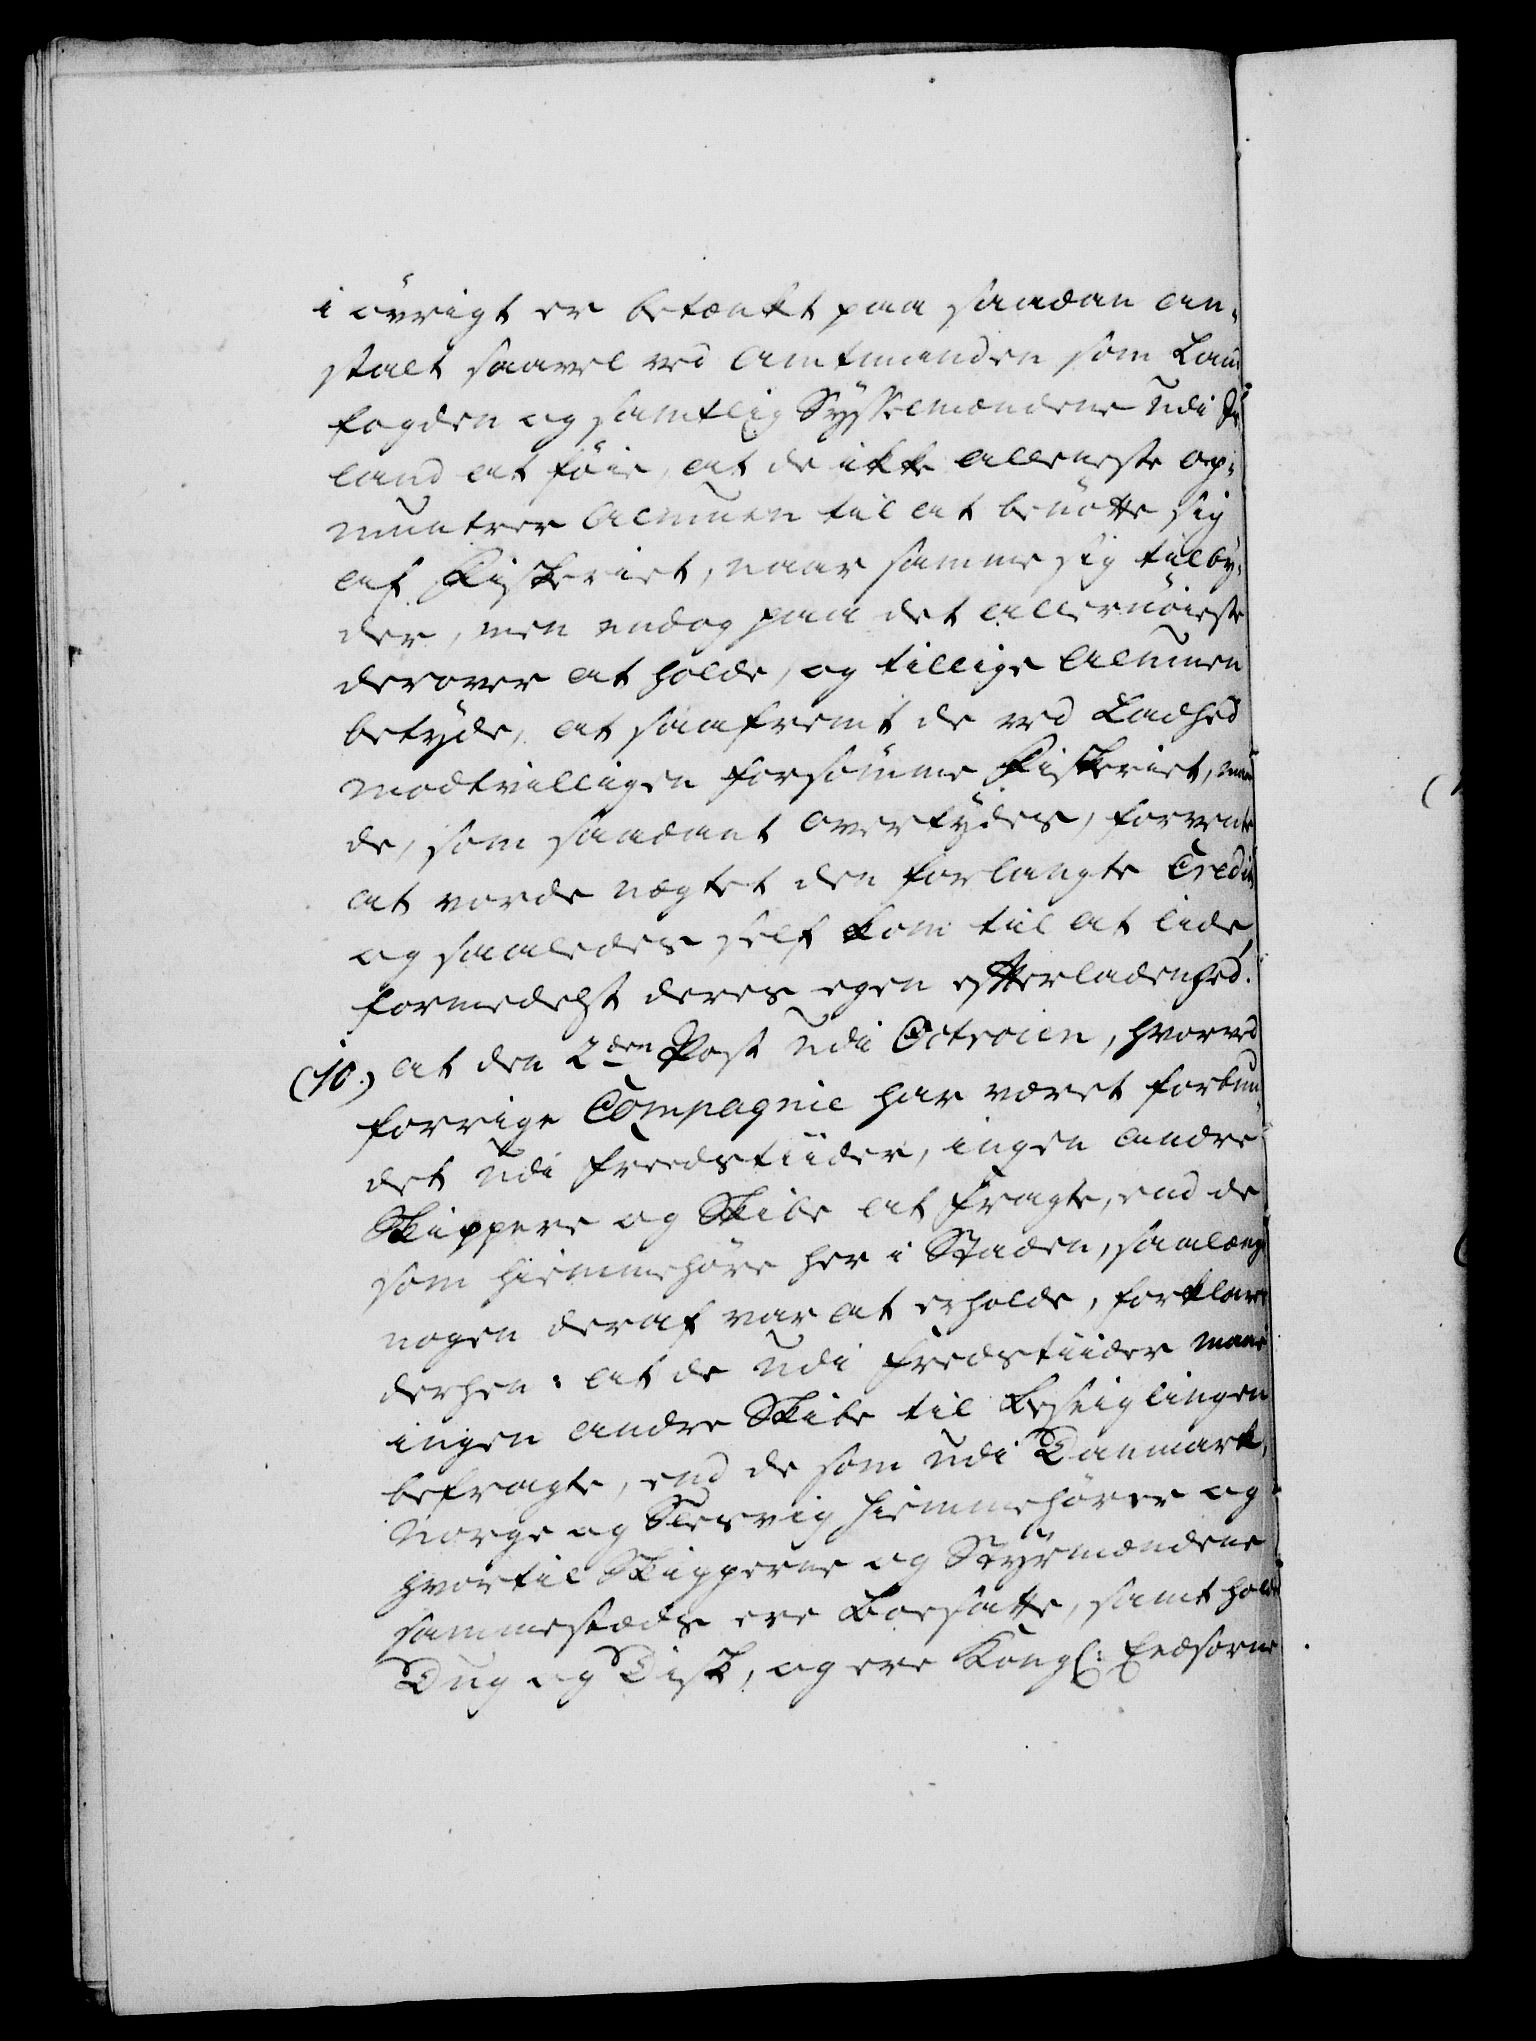 i övrigt er betænkt paa saadan An-
stalt saavel ved Amtmanden som Land
fogden og samtlig Sysselmændene udi Is
land at föie, at de ikke alleneste op-
muntrer Almuen til at benötte sig
af Fiskeriet, naar samme sig tilby-
der, men endog paa det allernöieste
derover at holde, og tillige Almuen
betyde, at saafremt de ved Ladhed
modtvilligen forsömme Fiskeriet, maa
de, som saadant overtydes, forvente
at vorde nægtet den forlangte Credit
og saaledes self kom til at lide,
formedelst deres egen efterladenhed.
(10.) at den 2den Post udi Octroien, hvorved
forrige Compagnie har været forbun-
det udi Freedstiider, ingen andre
Skippere og Skibe at fragte, end de
som hiemmehöre her i Staden, saalænge
nogen deraf var at erholde, forklares
derhen: at de udi Fredstiider maae
ingen andre Skibe til Besieiglingen
befragte, end de som udi Danmark,
Norge og Slesvig hiemmehörer og
hvortil Skipperne og Styrmændene
sammestæds ere Boesatte, samt holde
Dug og Disk, og ere Kongl: Eedsorne